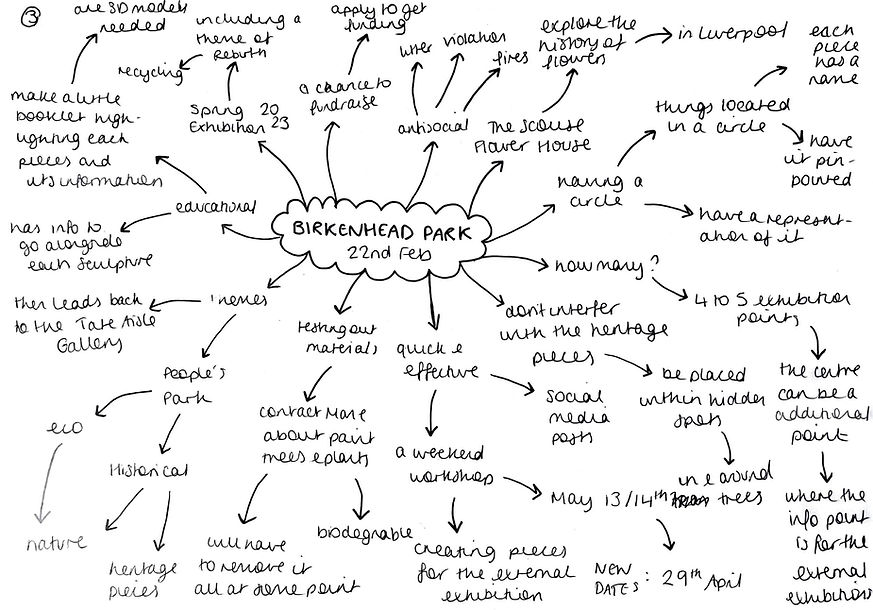 3
are 3D models
needed
make a little
booklet high-
lighting each
pieces and
its information
educational
has info to
go alongside
each sculpture
including a
theme of
rebirth
recycling
Spring 2023
Exhibition
apply to get
funding
a chance to
fundraise
litter
violation
fires
antisocial
explore the
history of
flowers
in Liverpool
The Scouse
Flower House
each
piece
has a
name
things located
in a circle
have
it pin-
pointed
having a
circle
have a represent-
ation of it
BIRKENHEAD PARK
22nd Feb
how many?
4 to 5 exhibition
points
the centre
can be a
additional
point
where the
info point
is for the
external
exhibitions
don't interfer
with the heritage
pieces
be placed
within hidden
spots
in & around
trees
themes
then leads back
to the Tate Aisle
Gallery
People's
Park
eco
nature
Historical
heritage
pieces
testing out
materials
contact More
about paint
trees & plants
will have
to remove it
all at some point
biodegnable
quick &
effective
social
media
posts
a weekend
workshop
May 13/14th
NEW
DATES: 29th April
creating pieces
for the external
exhibition